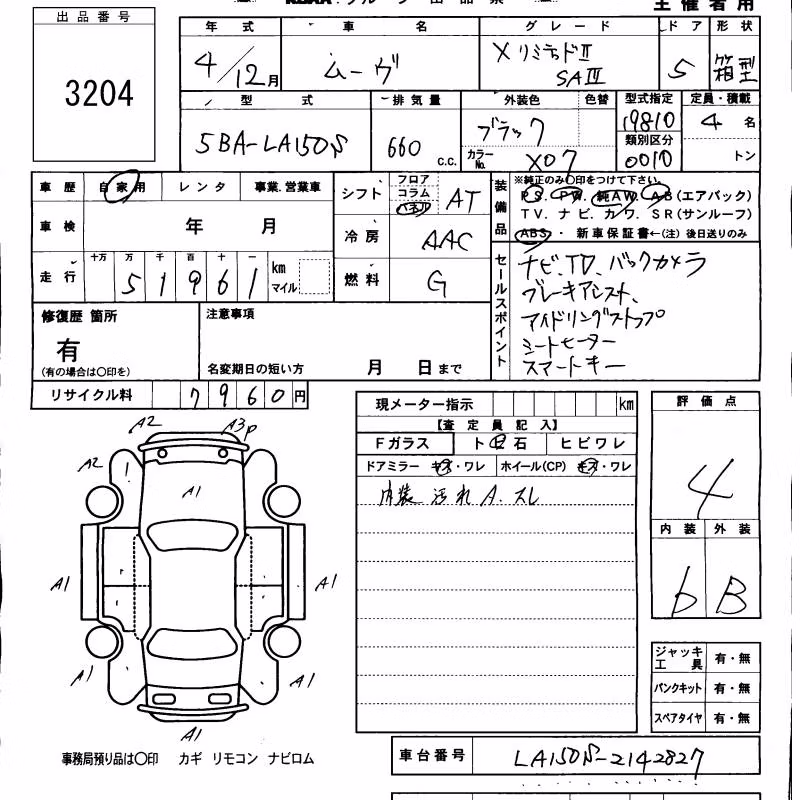 主催者用
出品番号
3204
年式 車名 グレード ドア 形状
4/12月 ムーヴ XリミテッドⅡ SAⅢ 5 箱型
型式 排気量 外装色 色替 型式指定 定員・積載
5BA-LA150S 660 C.C. ブラック 19810 4名
カラーNo. X07 類別区分 0010 トン
車歴 自家用 レンタ 事業.営業車
シフト フロア コラム パネル AT
装備品 ※純正のみ〇印をつけて下さい。
PS. PW. 純AW. AB(エアバッグ)
TV. ナビ. カワ. SR(サンルーフ)
ABS. ・ 新車保証書←(注) 後日送りのみ
車検 年 月
冷房 AAC
走行 十万 万 千 百 十 一
51961 km マイル
燃料 G
セールスポイント
ナビ、TV、バックカメラ
ブレーキアシスト、
アイドリングストップ
シートヒーター
スマートキー
修復歴 箇所
有
(有の場合は〇印を)
注意事項
名変期日の短い方 月 日まで
リサイクル料 7960円
現メーター指示 km
【査定員記入】
Fガラス ト飛石 ヒビワレ
ドアミラー キズ・ワレ ホイール(CP) キズ・ワレ
内装 汚れ A.スレ
評価点
4
内装 外装
b B
A2 A3P
A2
A1
A1 A1
A1 A1
A1
ジャッキ工具 有・無
パンクキット 有・無
スペアタイヤ 有・無
事務局預り品は〇印 カギ リモコン ナビロム
車台番号 LA150S-2142827